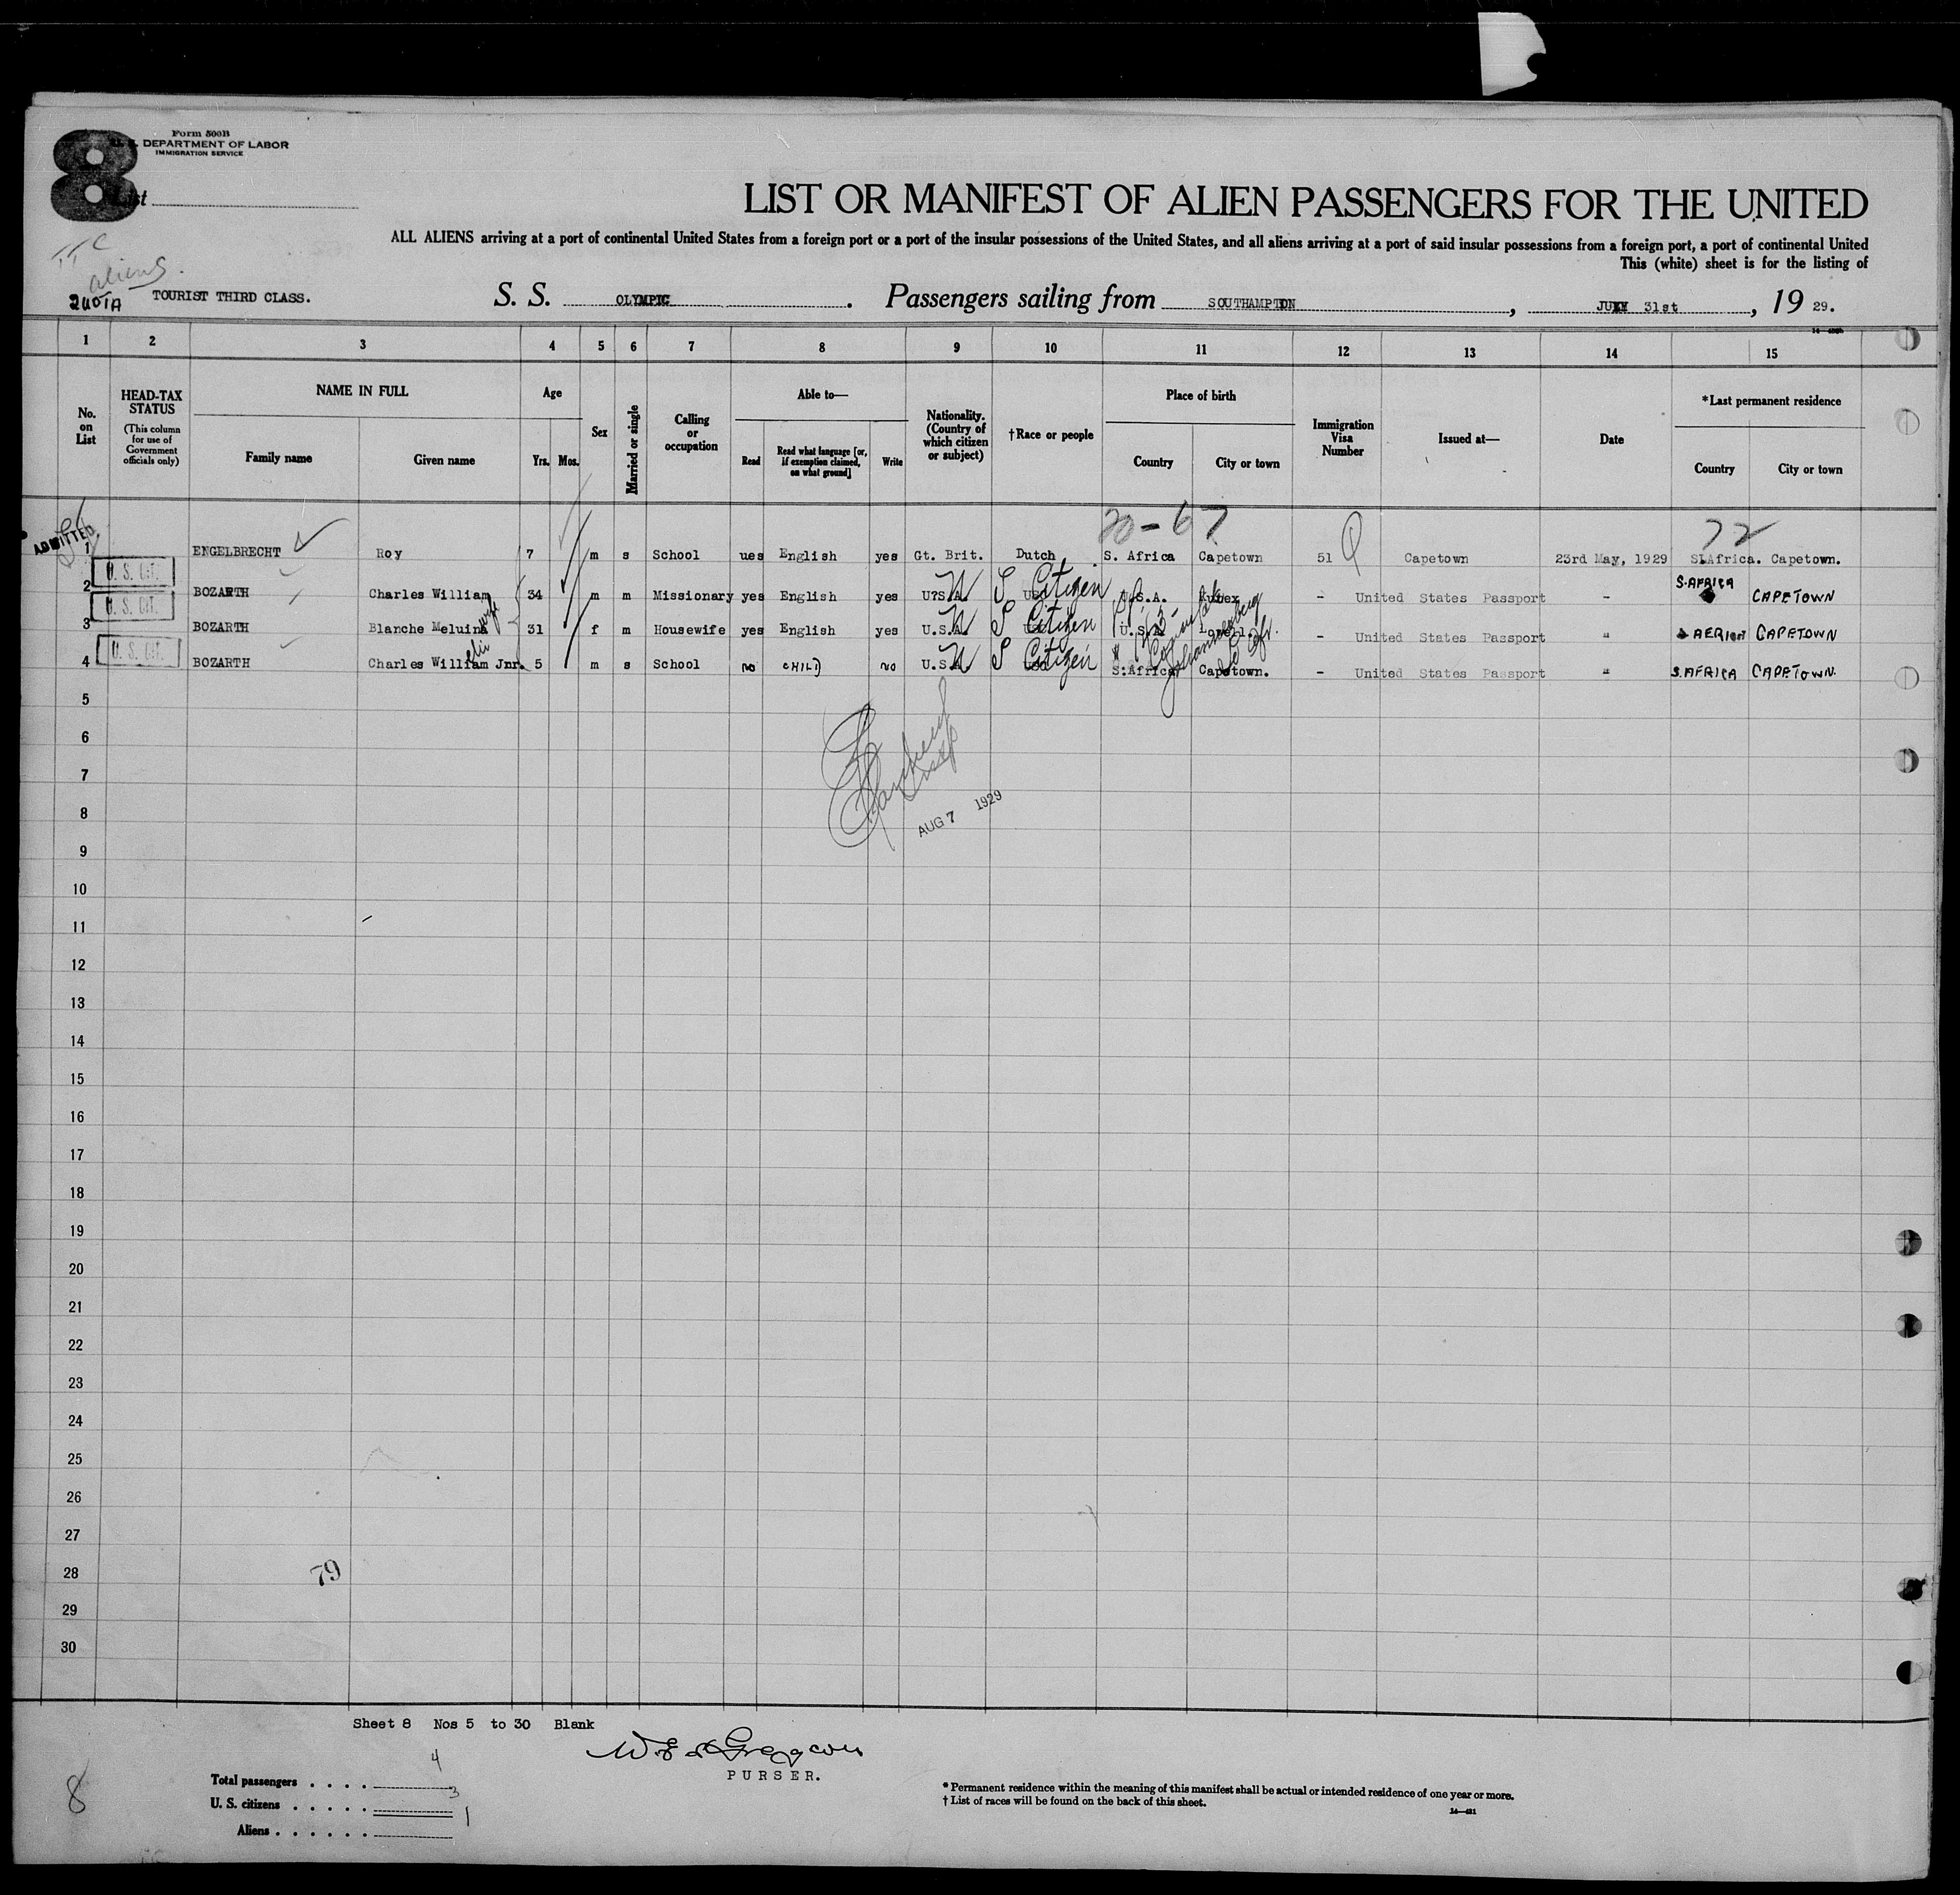 8
Form 500B
DEPARTMENT OF LABOR
IMMIGRATION SERVICE
List
LIST OR MANIFEST OF ALIEN PASSENGERS FOR THE UNITED
ALL ALIENS arriving at a port of continental United States from a foreign port or a port of the insular possessions of the United States, and all aliens arriving at a port of said insular possessions from a foreign port, a port of continental United
This (white) sheet is for the listing of
aliens.
TOURIST THIRD CLASS. S. S. OLYMPIC. Passengers sailing from SOUTHAMPTON, JULY 31st, 19 29.
1 2 3 4 5 6 7 8 9 10 11 12 13 14 15
No. on List
HEAD-TAX STATUS (This column for use of Government officials only)
NAME IN FULL Family name Given name
Age Yrs. Mos.
Sex
Married or single
Calling or occupation
Able to— Read Read what language [or, if exemption claimed, on what ground] Write
Nationality. (Country of which citizen or subject)
†Race or people
Place of birth Country City or town
Immigration Visa Number
Issued at—
Date
*Last permanent residence Country City or town
20-67 72
ADMITTED
1 ENGELBRECHT Roy 7 m s School ues English yes Gt. Brit. Dutch S. Africa Capetown 51 Q Capetown 23rd May, 1929 S.Africa. Capetown.
U. S. CIT.
2 BOZARTH Charles William 34 m m Missionary yes English yes U.S.A. Citizen U.S.A. - United States Passport - S.AFRICA CAPETOWN
U. S. CIT.
3 BOZARTH Blanche Meluina wife 31 f m Housewife yes English yes U.S.A. Citizen U.S.A. - United States Passport " CAPETOWN
U. S. CIT.
4 BOZARTH Charles William Jnr. 5 m s School NO CHILD NO U.S.A. Citizen S.Africa Capetown. - United States Passport " S.AFRICA CAPETOWN.
Johannesburg
5
6
7
8
AUG 7 1929
9
10
11
12
13
14
15
16
17
18
19
20
21
22
23
24
25
26
27
28
79
29
30
Sheet 8 Nos 5 to 30 Blank
PURSER.
8
Total passengers . . . . 4
U. S. citizens . . . . . 3
Aliens . . . . . . 1
* Permanent residence within the meaning of this manifest shall be actual or intended residence of one year or more.
† List of races will be found on the back of this sheet.